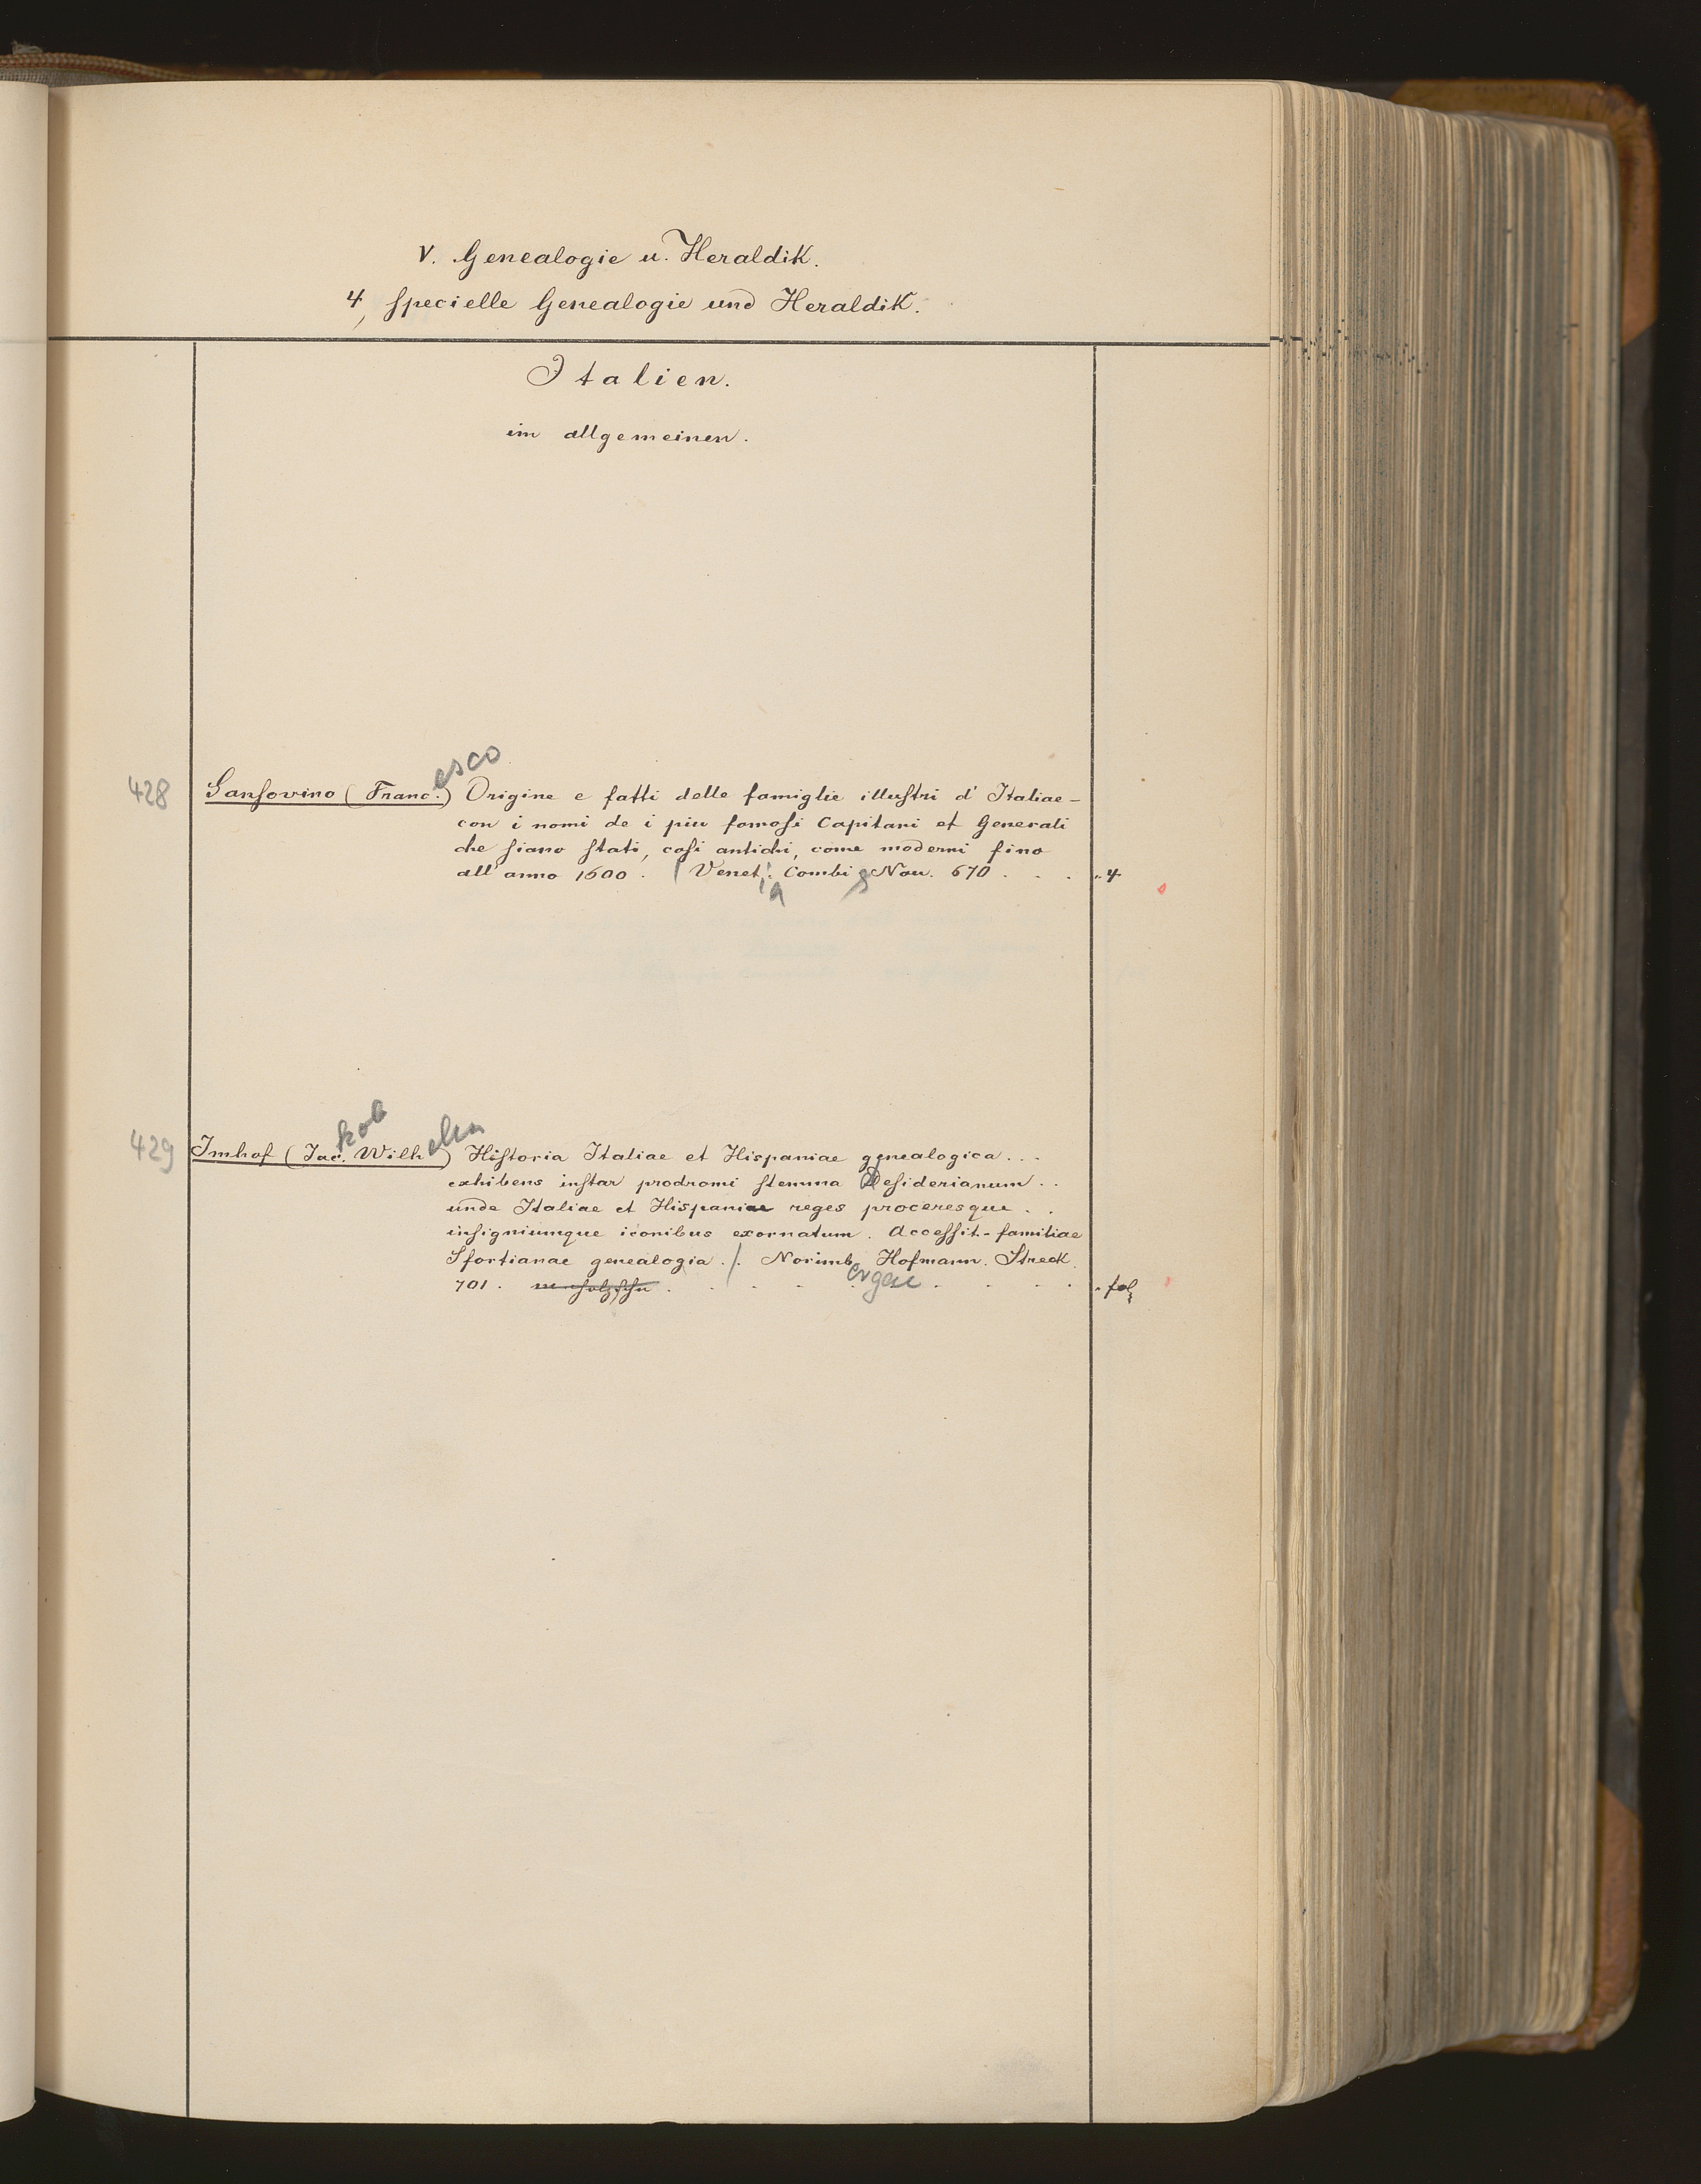 V. Genealogie u. Heraldik.
4, specielle Genealogie und Heraldik.
Italien.
im allgemeinen.
428 Sansovino (Franc.esco) Origine e fatti delle famiglie illustri d' Italiae -
con i nomi de i piu famosi Capitani et Generali
che siano stati, cosi antichi, come moderni fino
all' anno 1600. / Venetia. Combi & Nou. 670 . . . 4
429 Imhof (Jac.kob Wilhelm) Historia Italiae et Hispaniae genealogica...
exhibens instar prodromi stemma Desiderianum . .
unde Italiae et Hispaniae reges proceresque . .
insigniumque iconibus exornatum. Accessit - familiae
Sfortianae genealogia. /. Norimbergae Hofmann. Streck.
701. . . . . . . fol.